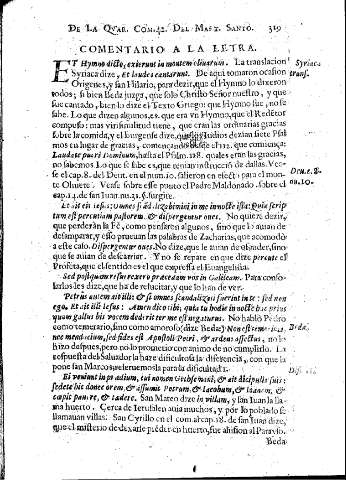 DE LA QVAR. COM. 52. DEL MART. SANTO. 319
COMENTARIO A LA LETRA.
ET Hymno dicto, exierunt in montem olivarum. La translacion
Syriaca dize, Et laudes cantarunt. De aqui tomaron ocasion
Origenes, y san Hilario, para dezir, que el Hymno le dixeron
todos; si bien Beda juzga, que solo Christo Señor nuestro, y que
fue cantado, bien lo dize el Texto Griego: que Hymno fue, no se
sabe. Lo que dizen algunos, es, que era vn Hymno, que el Redẽtor
compuso: mas virisimilitud tiene, que eran las ordinarias gracias
sobre la comida, y el burgense dize, que los Iudios dezian siete Psal
mos en lugar de gracias, començando desde el 112. que comiença:
Laudate pueri Dominum, hasta el Psalm. 118. quales eran las gracias,
no sabemos. Lo que se sabe es, que tenian instrucció de dallas. Vea-
se el cap. 8. del Deut. en el num. 10. salieron en efecto para el mon-
te Oliuete. Vease sobre esse punto el Padre Maldonado sobre el
cap. 14. de san Iuan, nu. 31. §. surgite.
Et ait eis Iesus: Omnes scandalizabimini in me in nocte ista: Quia scrip
tum est percutiam pastorem. & dispergentur oues. No quiere dezir,
que perderan la Fè, como pensaron algunos, sino que le auian de
desamparar, y esso prueuan las palabras de Zacharias, que acomodò
a este caso. Dispergentur oues. No dize, que le auian de ofender, sino
que se auian de descarriar. Y no se repare en que dize percute el
Profeta, que el sentido es el que expressa el Euangelista.
Sed postquam resurrexero praecedam vos in Galileam. Para conso-
larlos les dize, que ha de refucitar, y que lo han de ver.
Petrus autem ait illi: Et si omnes scandalizati fuerint in te: sed non
ego. Et ait illi Iesus: Amen dico tibi, quia tu hodie in nocte hac prius
quam gallus bis vocem dederit ter me es negaturus. No hablò Pedro
como temerario, sino como amoroso (dize Beda) Non est temeritas,
nec mendacium, sed fides est Apostoli Petri, & ardens affectus, no lo
hizo despues, pero no lo prometio con animo de no cumplirlo. La
respuesta del Saluador la haze dificultosa la diferencia, con que la
pone san Marcos, veremosla para la dificultosas.
Et veniunt in prædium, cui nomen Gethsemani, & ait discipulis suis:
sedete hic donec orem & assumit Petrum, & Iacobum, & Ioannem, &
cœpit pauere, & tædere. San Mateo dize in villam, y san Iuan la lla
ma huerto. Cerca de Ierusalen auia muchos, y por lo poblado se
llamauan villas. San Cyrillo en el com. al cap. 18. de san Iuan dize,
que el misterio de dexarse prẽder en huerto, fue alusion al Parayso.
Beda
Syriaca
trans.
Deu. c. 8.
nu. 10.
Beda.